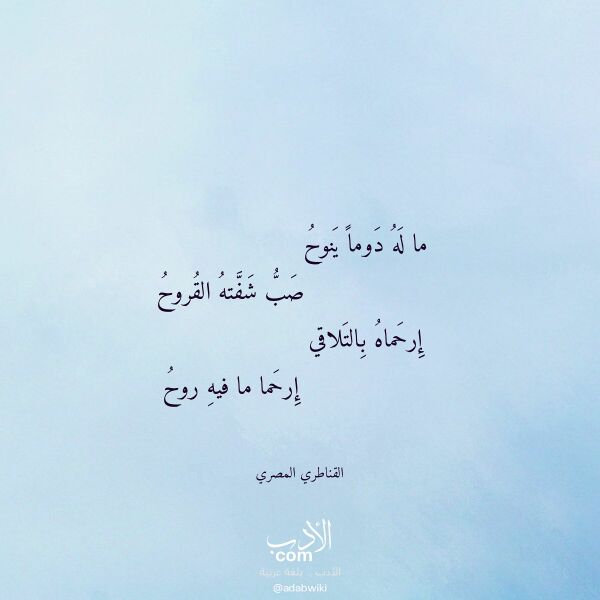 ما لَهُ دَوماً يَنوحُ
صَبُّ شَفَّتهُ القُروحُ
إِرحَماهُ بِالتَلاقي
إِرحَما ما فيهِ روحُ
القناطري المصري
الأدب
com
الأدب .. بلغة عربية
@adabwiki